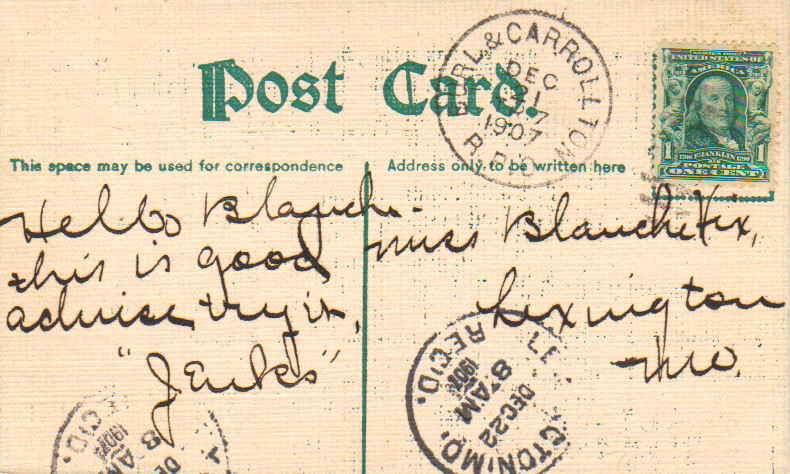 Post Card.
BURL. & CARROLLTON
DEC
21
1907
R.P.O.
UNITED STATES OF
AMERICA
1706 FRANKLIN 1790
1 1
POSTAGE
ONE CENT
This space may be used for correspondence
Address only to be written here
Hello Blanch-
this is good
advise try it,
"Jenks"
Miss Blanche Vix,
Lexington
Mo.
LE CTON, MO.
DEC 22
8 AM
1907
REC'D.
DE
8 AM
1907
EC'D.